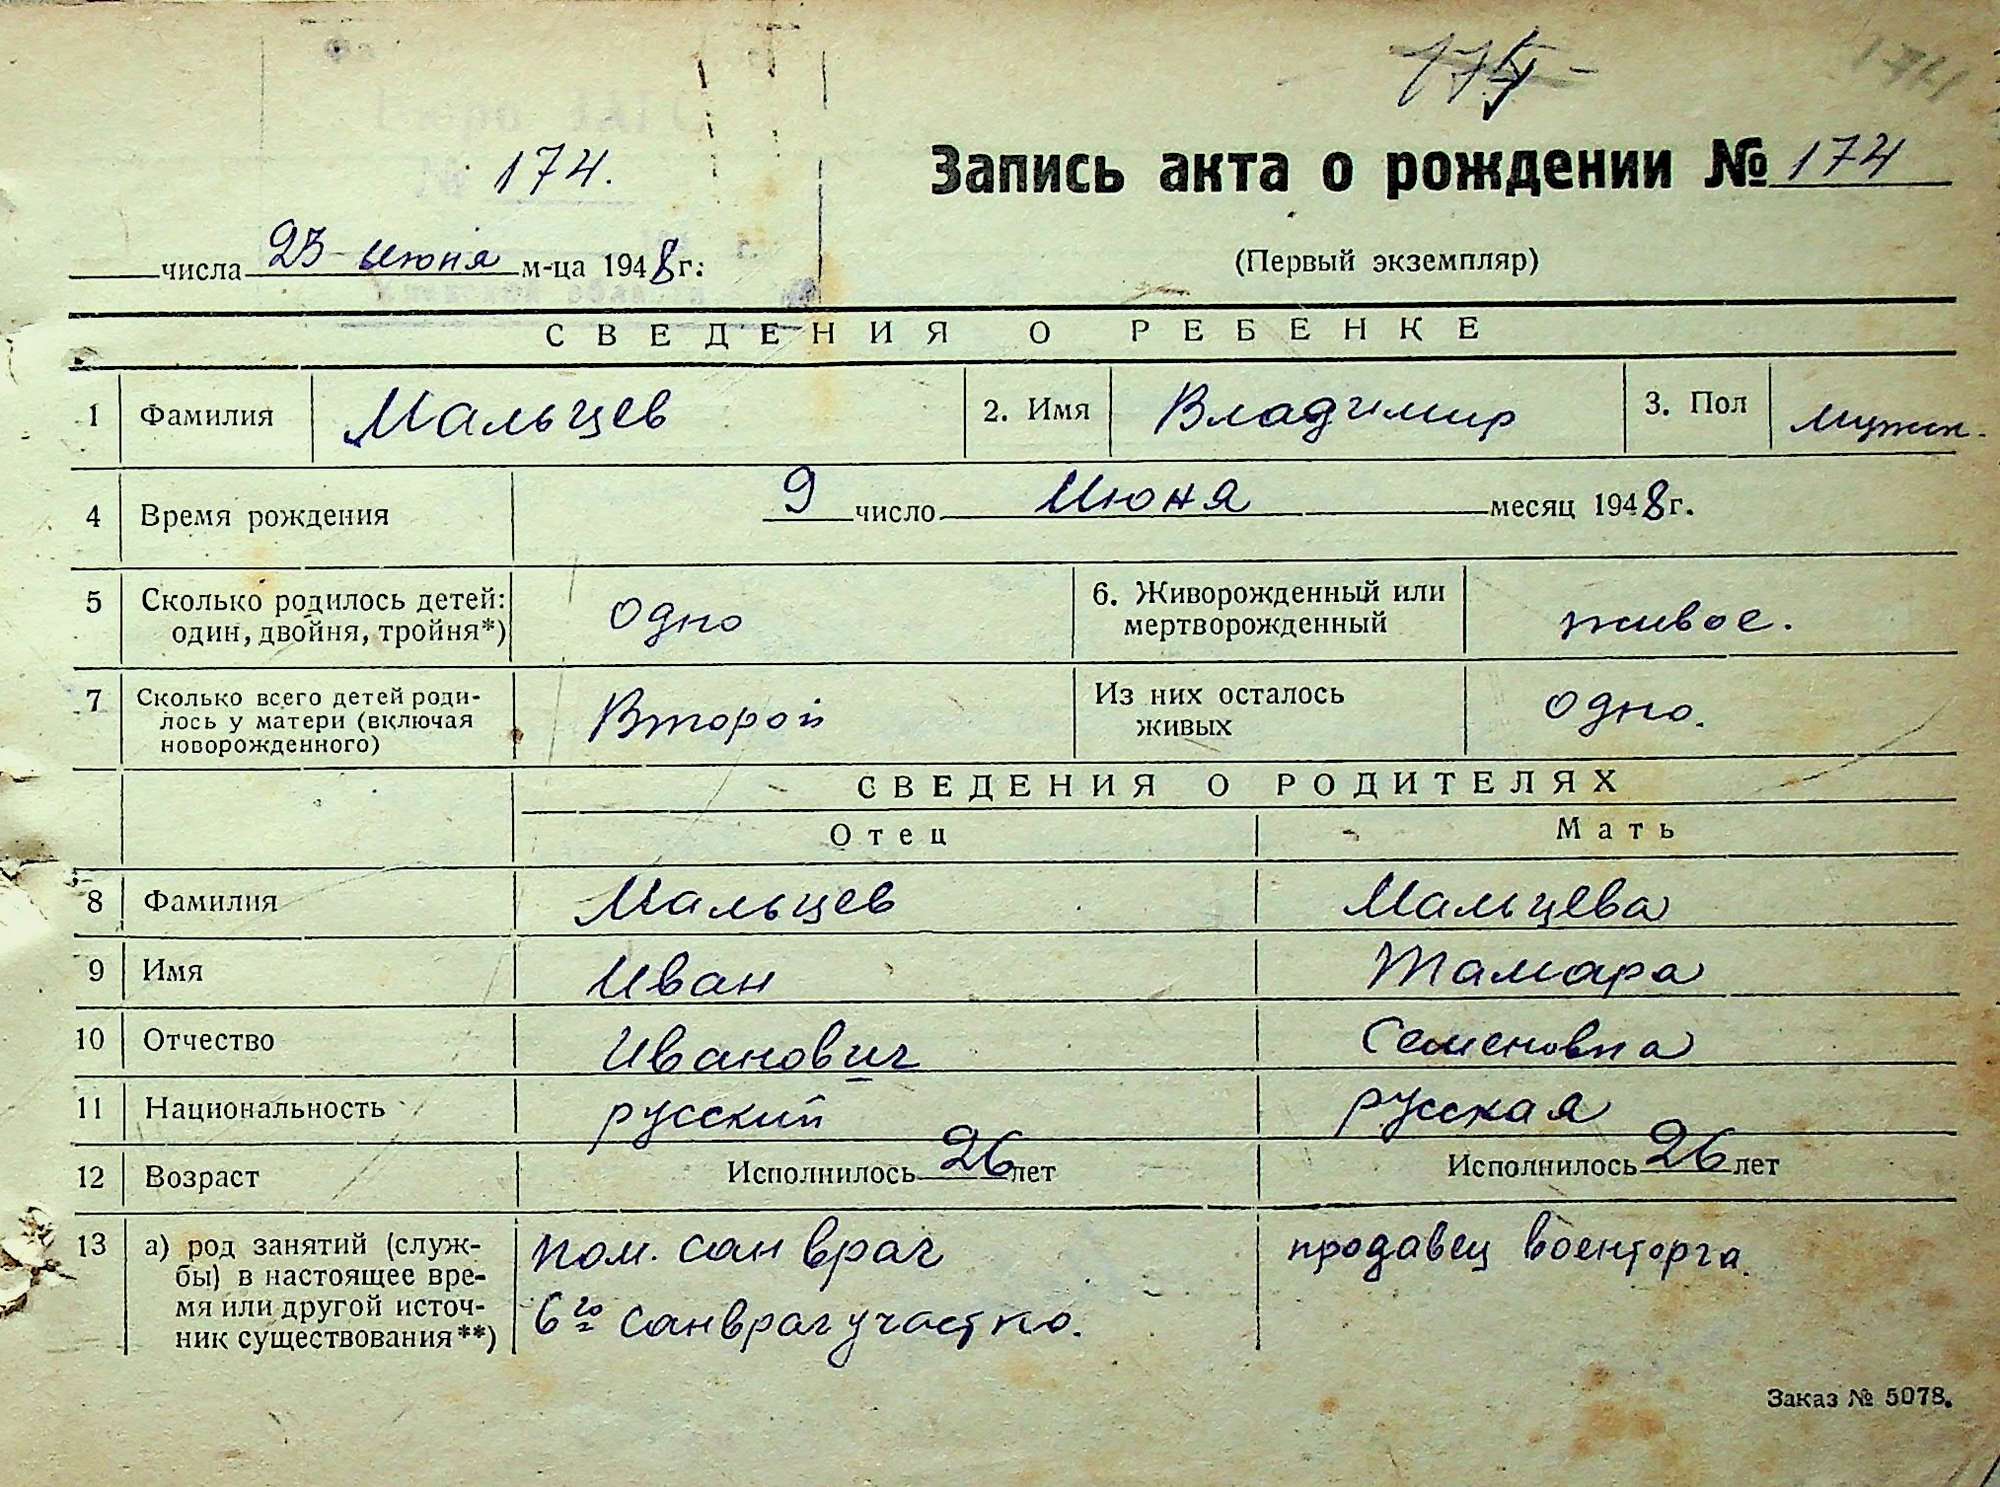 174
174.
Запись акта о рождении № 174
числа 23 июня м-ца 1948 г.:
(Первый экземпляр)
СВЕДЕНИЯ О РЕБЕНКЕ
1 Фамилия Мальцев 2. Имя Владимир 3. Пол мужск.
4 Время рождения 9 число Июня месяц 1948 г.
5 Сколько родилось детей: один, двойня, тройня*) одно 6. Живорожденный или мертворожденный живое.
7 Сколько всего детей роди-лось у матери (включая новорожденного) Второй Из них осталось живых одно.
СВЕДЕНИЯ О РОДИТЕЛЯХ
Отец Мать
8 Фамилия Мальцев Мальцева
9 Имя Иван Тамара
10 Отчество Иванович Семеновна
11 Национальность русский русская
12 Возраст Исполнилось 26 лет Исполнилось 26 лет
13 а) род занятий (служ-бы) в настоящее вре-мя или другой источ-ник существования**) пом. сан врач 6го санврачучастка. продавец военторга.
Заказ № 5078.